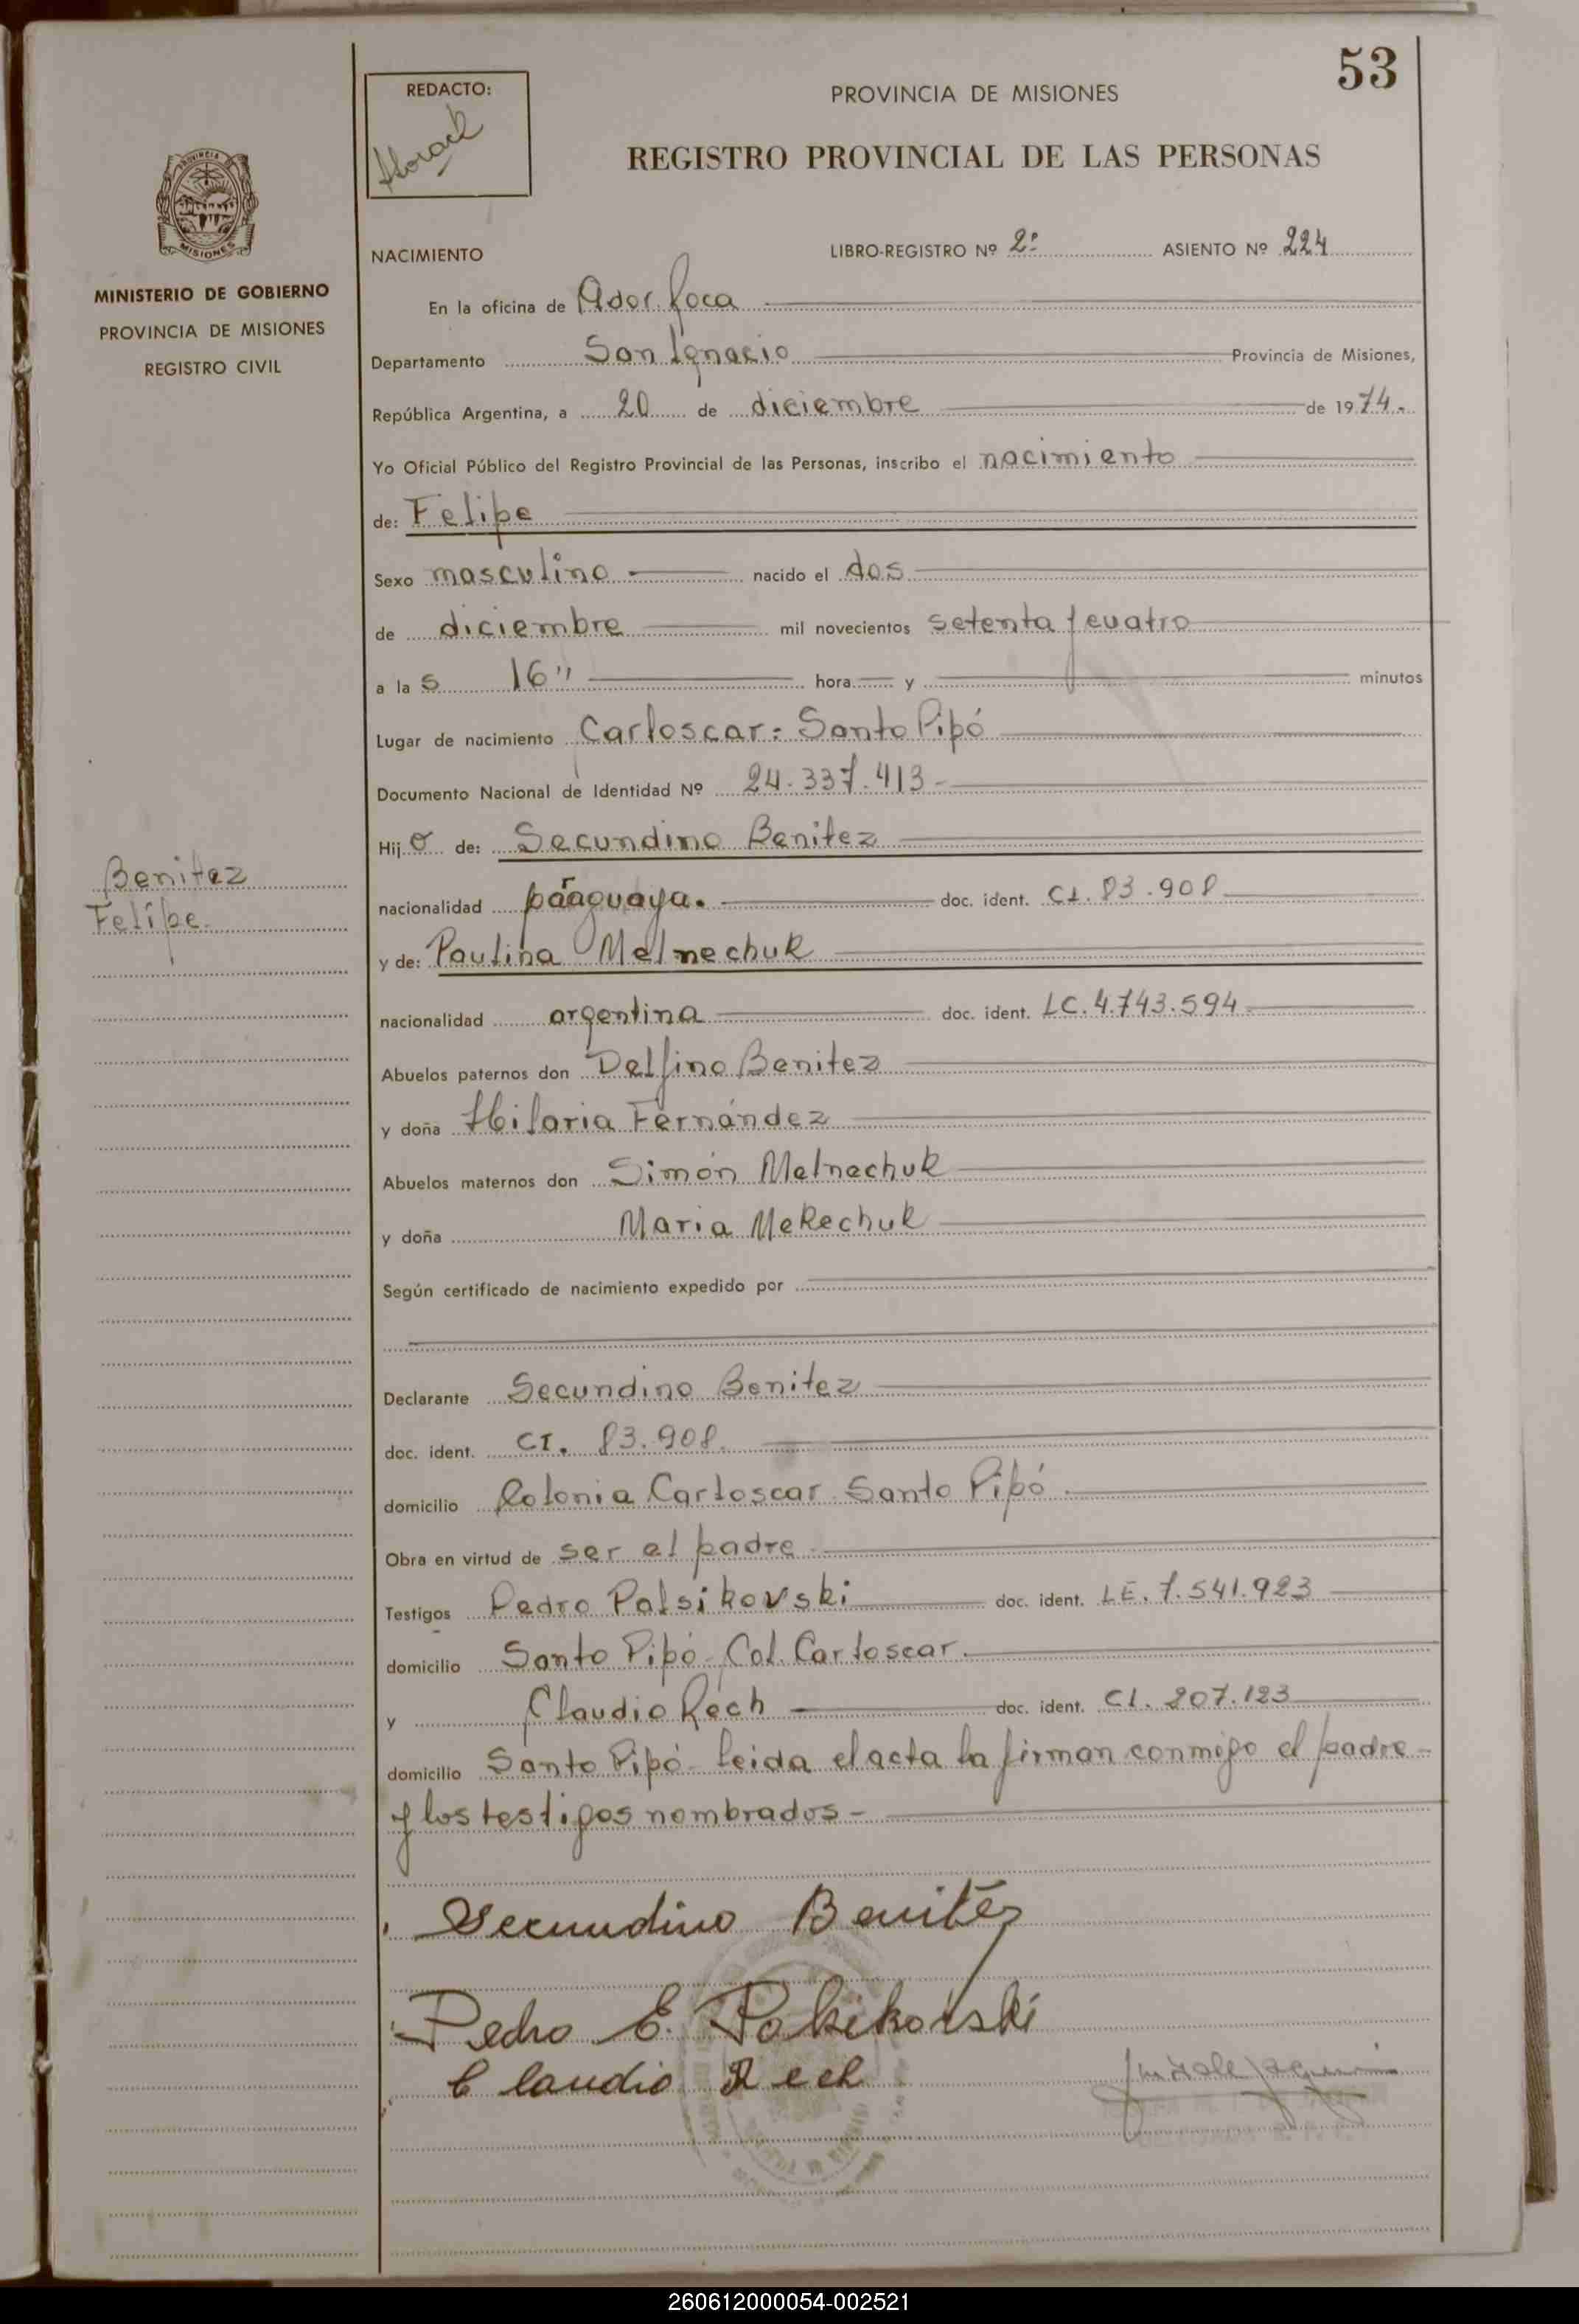 53
REDACTO:
PROVINCIA DE MISIONES
REGISTRO PROVINCIAL DE LAS PERSONAS
MISIONES
MINISTERIO DE GOBIERNO
PROVINCIA DE MISIONES
REGISTRO CIVIL
NACIMIENTO LIBRO-REGISTRO Nº 2º ASIENTO Nº 224
En la oficina de Gdor. Roca
Departamento San Ignacio Provincia de Misiones,
República Argentina, a 20 de diciembre de 1974.
Yo Oficial Público del Registro Provincial de las Personas, inscribo el nacimiento
de: Felipe
Sexo masculino nacido el dos
de diciembre mil novecientos setenta y cuatro
a la s 16" hora y minutos
Lugar de nacimiento Carloscar = Santo Pipó
Documento Nacional de Identidad Nº 24.337.413-
Hij o de: Secundino Benitez
Benitez
Felipe.
nacionalidad paraguaya. doc. ident. CI. 83.908
y de: Paulina Melnechuk
nacionalidad argentina doc. ident. LC. 4.743.594
Abuelos paternos don Delfino Benitez
y doña Hilaria Fernández
Abuelos maternos don Simón Melnechuk
y doña Maria Mekechuk
Según certificado de nacimiento expedido por
Declarante Secundino Benitez
doc. ident. CI. 83.908.
domicilio Colonia Carloscar Santo Pipó.
Obra en virtud de ser el padre
Testigos Pedro Polsikovski doc. ident. LE. 7.541.923
domicilio Santo Pipó - Col. Carloscar.
y Claudio Rech doc. ident. CI. 207.123
domicilio Santo Pipó - leida el acta la firman conmigo el padre -
y los testigos nombrados -
Secundino Benitez
Pedro E.
Claudio Rech
260612000054-002521